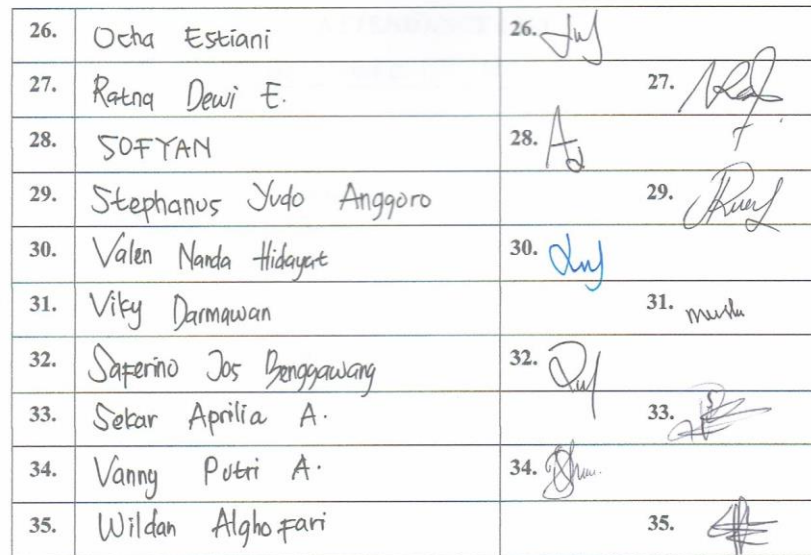 26. Ocha Estiani 26.
27. Ratna Dewi E. 27.
28. SOFYAN 28.
29. Stephanus Yudo Anggoro 29.
30. Valen Nanda Hidayat 30.
31. Viky Darmawan 31.
32. Saferino Jos Benggawang 32.
33. Sekar Aprilia A. 33.
34. Vanny Putri A. 34.
35. Wildan Alghofari 35.